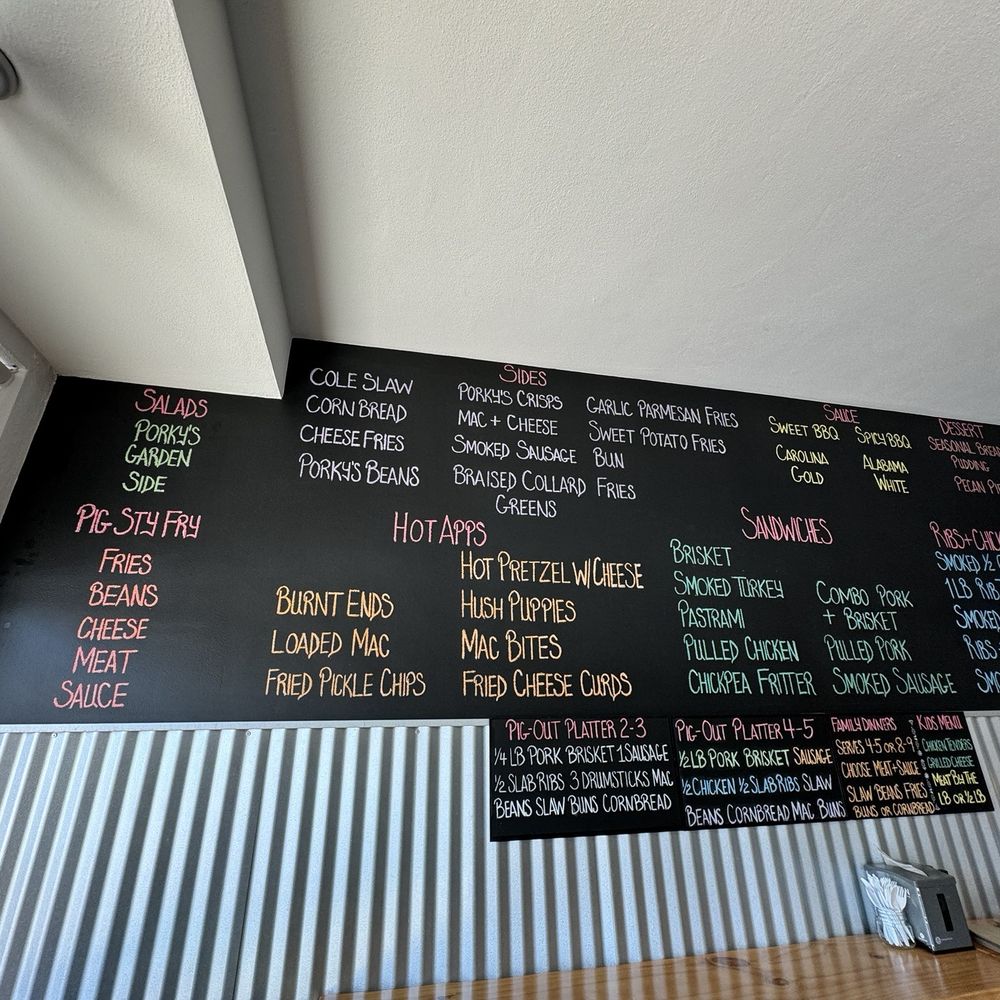 SALADS
PORKY'S
GARDEN
SIDE
PIG STY FRY
FRIES
BEANS
CHEESE
MEAT
SAUCE
SIDES
COLE SLAW
CORN BREAD
CHEESE FRIES
PORKY'S BEANS
PORKY'S CRISPS
MAC + CHEESE
SMOKED SAUSAGE
BRAISED COLLARD
GREENS
GARLIC PARMESAN FRIES
SWEET POTATO FRIES
BUN
FRIES
HOT APPS
BURNT ENDS
LOADED MAC
FRIED PICKLE CHIPS
HOT PRETZEL W/ CHEESE
HUSH PUPPIES
MAC BITES
FRIED CHEESE CURDS
SAUCE
SWEET BBQ
CAROLINA
GOLD
SPICY BBQ
ALABAMA
WHITE
SANDWICHES
BRISKET
SMOKED TURKEY
PASTRAMI
PULLED CHICKEN
CHICKPEA FRITTER
COMBO PORK
+ BRISKET
PULLED PORK
SMOKED SAUSAGE
DESSERT
SEASONAL
PUDDING
PECAN
RIBS +
SMOKED 1/2
1 LB
RIBS
PIG-OUT PLATTER 2-3
1/4 LB PORK BRISKET 1 SAUSAGE
1/2 SLAB RIBS 3 DRUMSTICKS MAC
BEANS SLAW BUNS CORNBREAD
PIG-OUT PLATTER 4-5
1/2 LB PORK BRISKET SAUSAGE
1/2 CHICKEN 1/2 SLAB RIBS SLAW
BEANS CORNBREAD MAC BUNS
FAMILY DINNERS
SERVES 4-5 OR 8-9
CHOOSE MEAT + SAUCE
SLAW BEANS FRIES
BUNS OR CORNBREAD
KIDS MENU
CHICKEN TENDERS
GRILLED CHEESE
MEAT BY THE
LB OR 1/2 LB